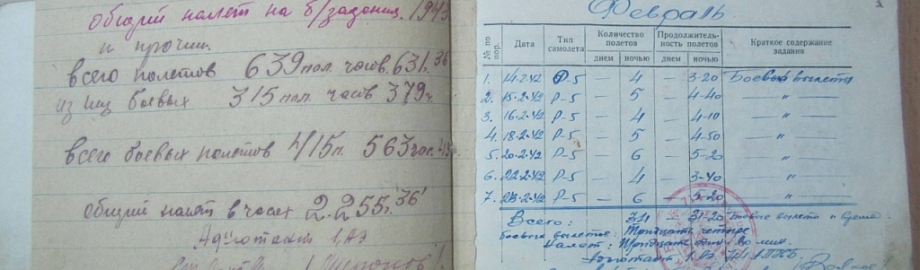 общий налет на б/задания. 1943
и прочии.
всего полетов 639 пол. часов. 631ч.36
из них боевых 315 пол. часов 379ч
всего боевых полетов 415п. 563час.
общий налет в часах 2.255ч.36'
Адъютант 1 АЭ
Февраль
№ по пор.
Дата
Тип самолета
Количество полетов
днем
ночью
Продолжительность полетов
днем
ночью
Краткое содержание задания
1. 14-2-42 Р-5 — 4 — 3-20 Боевые вылеты
2. 15-2-42 Р-5 — 5 — 4-40 — " —
3. 16-2-42 Р-5 — 4 — 4-10 — " —
4. 18-2-42 Р-5 — 5 — 4-50 — " —
5. 20-2-42 Р-5 — 6 — 5-20 — " —
6. 22-2-42 Р-5 — 4 — 3-40 — " —
7. 23-2-42 Р-5 — 6 — 5-20 — " —
Всего: 34 — 31-20 вылета и время.
боевые вылеты: Тридцать четыре
налет: мин.
Адъютант 1 АЭ